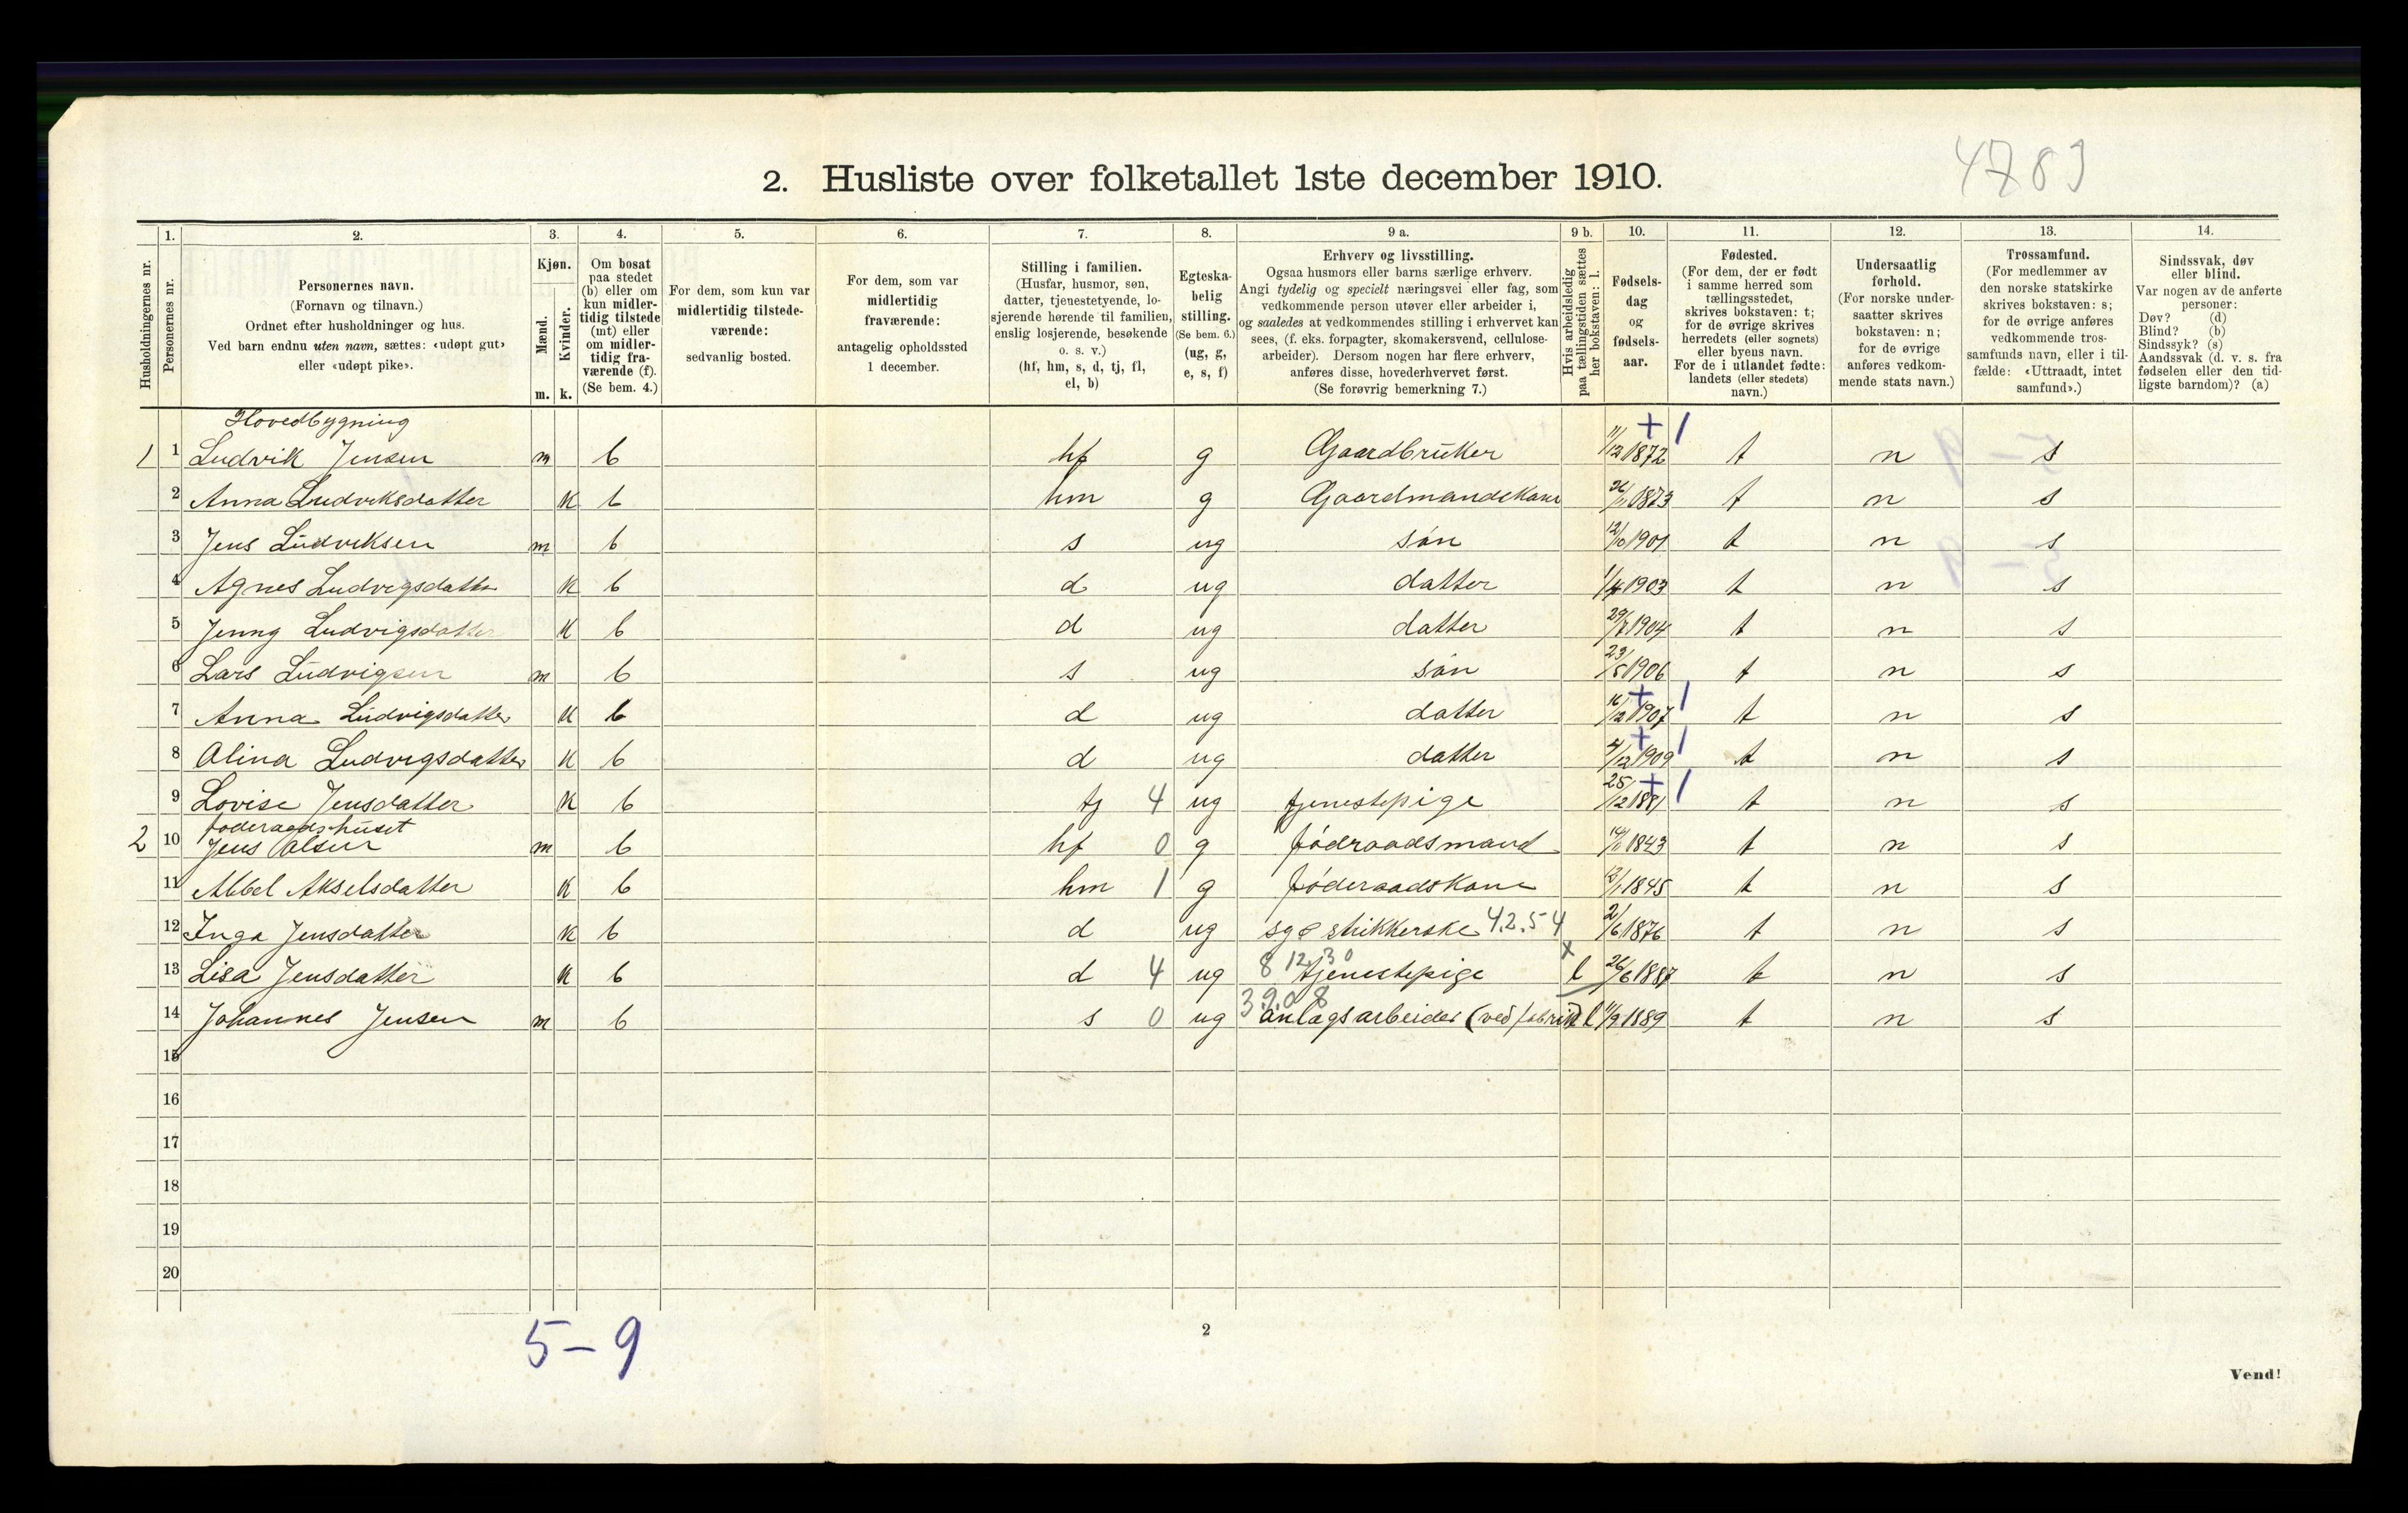 4783
2. Husliste over folketallet 1ste december 1910.
Husholdningernes nr.
1. Personernes nr.
2. Personernes navn.
(Fornavn og tilnavn.)
Ordnet efter husholdninger og hus.
Ved barn endnu uten navn, sættes: «udøpt gut»
eller «udøpt pike».
3. Kjøn.
Mænd. m.
Kvinder. k.
4. Om bosat
paa stedet
(b) eller om
kun midler-
tidig tilstede
(mt) eller
om midler-
tidig fra-
værende (f).
(Se bem. 4.)
5. For dem, som kun var
midlertidig tilstede-
værende:
sedvanlig bosted.
6. For dem, som var
midlertidig
fraværende:
antagelig opholdssted
1 december.
7. Stilling i familien.
(Husfar, husmor, søn,
datter, tjenestetyende, lo-
sjerende hørende til familien,
enslig losjerende, besøkende
o. s. v.)
(hf, hm, s, d, tj, fl,
el, b)
8. Egteska-
belig
stilling.
(Se bem. 6.)
(ug, g,
e, s, f)
9 a. Erhverv og livsstilling.
Ogsaa husmors eller barns særlige erhverv.
Angi tydelig og specielt næringsvei eller fag, som
vedkommende person utøver eller arbeider i,
og saaledes at vedkommendes stilling i erhvervet kan
sees, (f. eks. forpagter, skomakersvend, cellulose-
arbeider). Dersom nogen har flere erhverv,
anføres disse, hovederhvervet først.
(Se forøvrig bemerkning 7.)
9 b. Hvis arbeidsledig
paa tællingstiden sættes
her bokstaven: l.
10. Fødsels-
dag
og
fødsels-
aar.
11. Fødested.
(For dem, der er født
i samme herred som
tællingsstedet,
skrives bokstaven: t;
for de øvrige skrives
herredets (eller sognets)
eller byens navn.
For de i utlandet fødte:
landets (eller stedets)
navn.)
12. Undersaatlig
forhold.
(For norske under-
saatter skrives
bokstaven: n;
for de øvrige
anføres vedkom-
mende stats navn.)
13. Trossamfund.
(For medlemmer av
den norske statskirke
skrives bokstaven: s;
for de øvrige anføres
vedkommende tros-
samfunds navn, eller i til-
fælde: «Uttraadt, intet
samfund».)
14. Sindssvak, døv
eller blind.
Var nogen av de anførte
personer:
Døv? (d)
Blind? (b)
Sindssyk? (s)
Aandssvak (d. v. s. fra
fødselen eller den tid-
ligste barndom)? (a)
Hovedbygning
1 1 Ludvik Jensen m b hf g Gaardbruker 11/12 1872 + 1 t n s
2 Anna Ludviksdatter k b hm g Gaardmandskone 1873 t n s
3 Jens Ludviksen m b s ug søn 12/10 1901 t n s
4 Agnes Ludvigsdatter k b d ug datter 1/4 1903 t n s
5 Jenny Ludvigsdatter k b d ug datter 29/7 1904 t n s
6 Lars Ludvigsen m b s ug søn 23/5 1906 t n s
7 Anna Ludvigsdatter k b d ug datter 16/12 1907 + 1 t n s
8 Olina Ludvigsdatter k b d ug datter 1909 + 1 t n s
9 Lovise Jensdatter k b tj 4 ug tjenestepige 25/12 1881 + 1 t n s
føderaadshuset
2 10 Jens Olsen m b hf 0 g föderaadsmand 1843 t n s
11 Abbel Akselsdatter k b hm 1 g föderaadskone 1845 t n s
12 Inga Jensdatter k b d ug sy o strikkerske 4.2.54 2/6 1876 t n s
8 12.30 x
13 Lisa Jensdatter k b d 4 ug tjenestepige l 26/6 1887 t n s
3.9.08
14 Johannes Jensen m b s 0 ug anlægsarbeider (ved fabrik) l 1889 t n s
15
16
17
18
19
20
5-9
2
Vend!